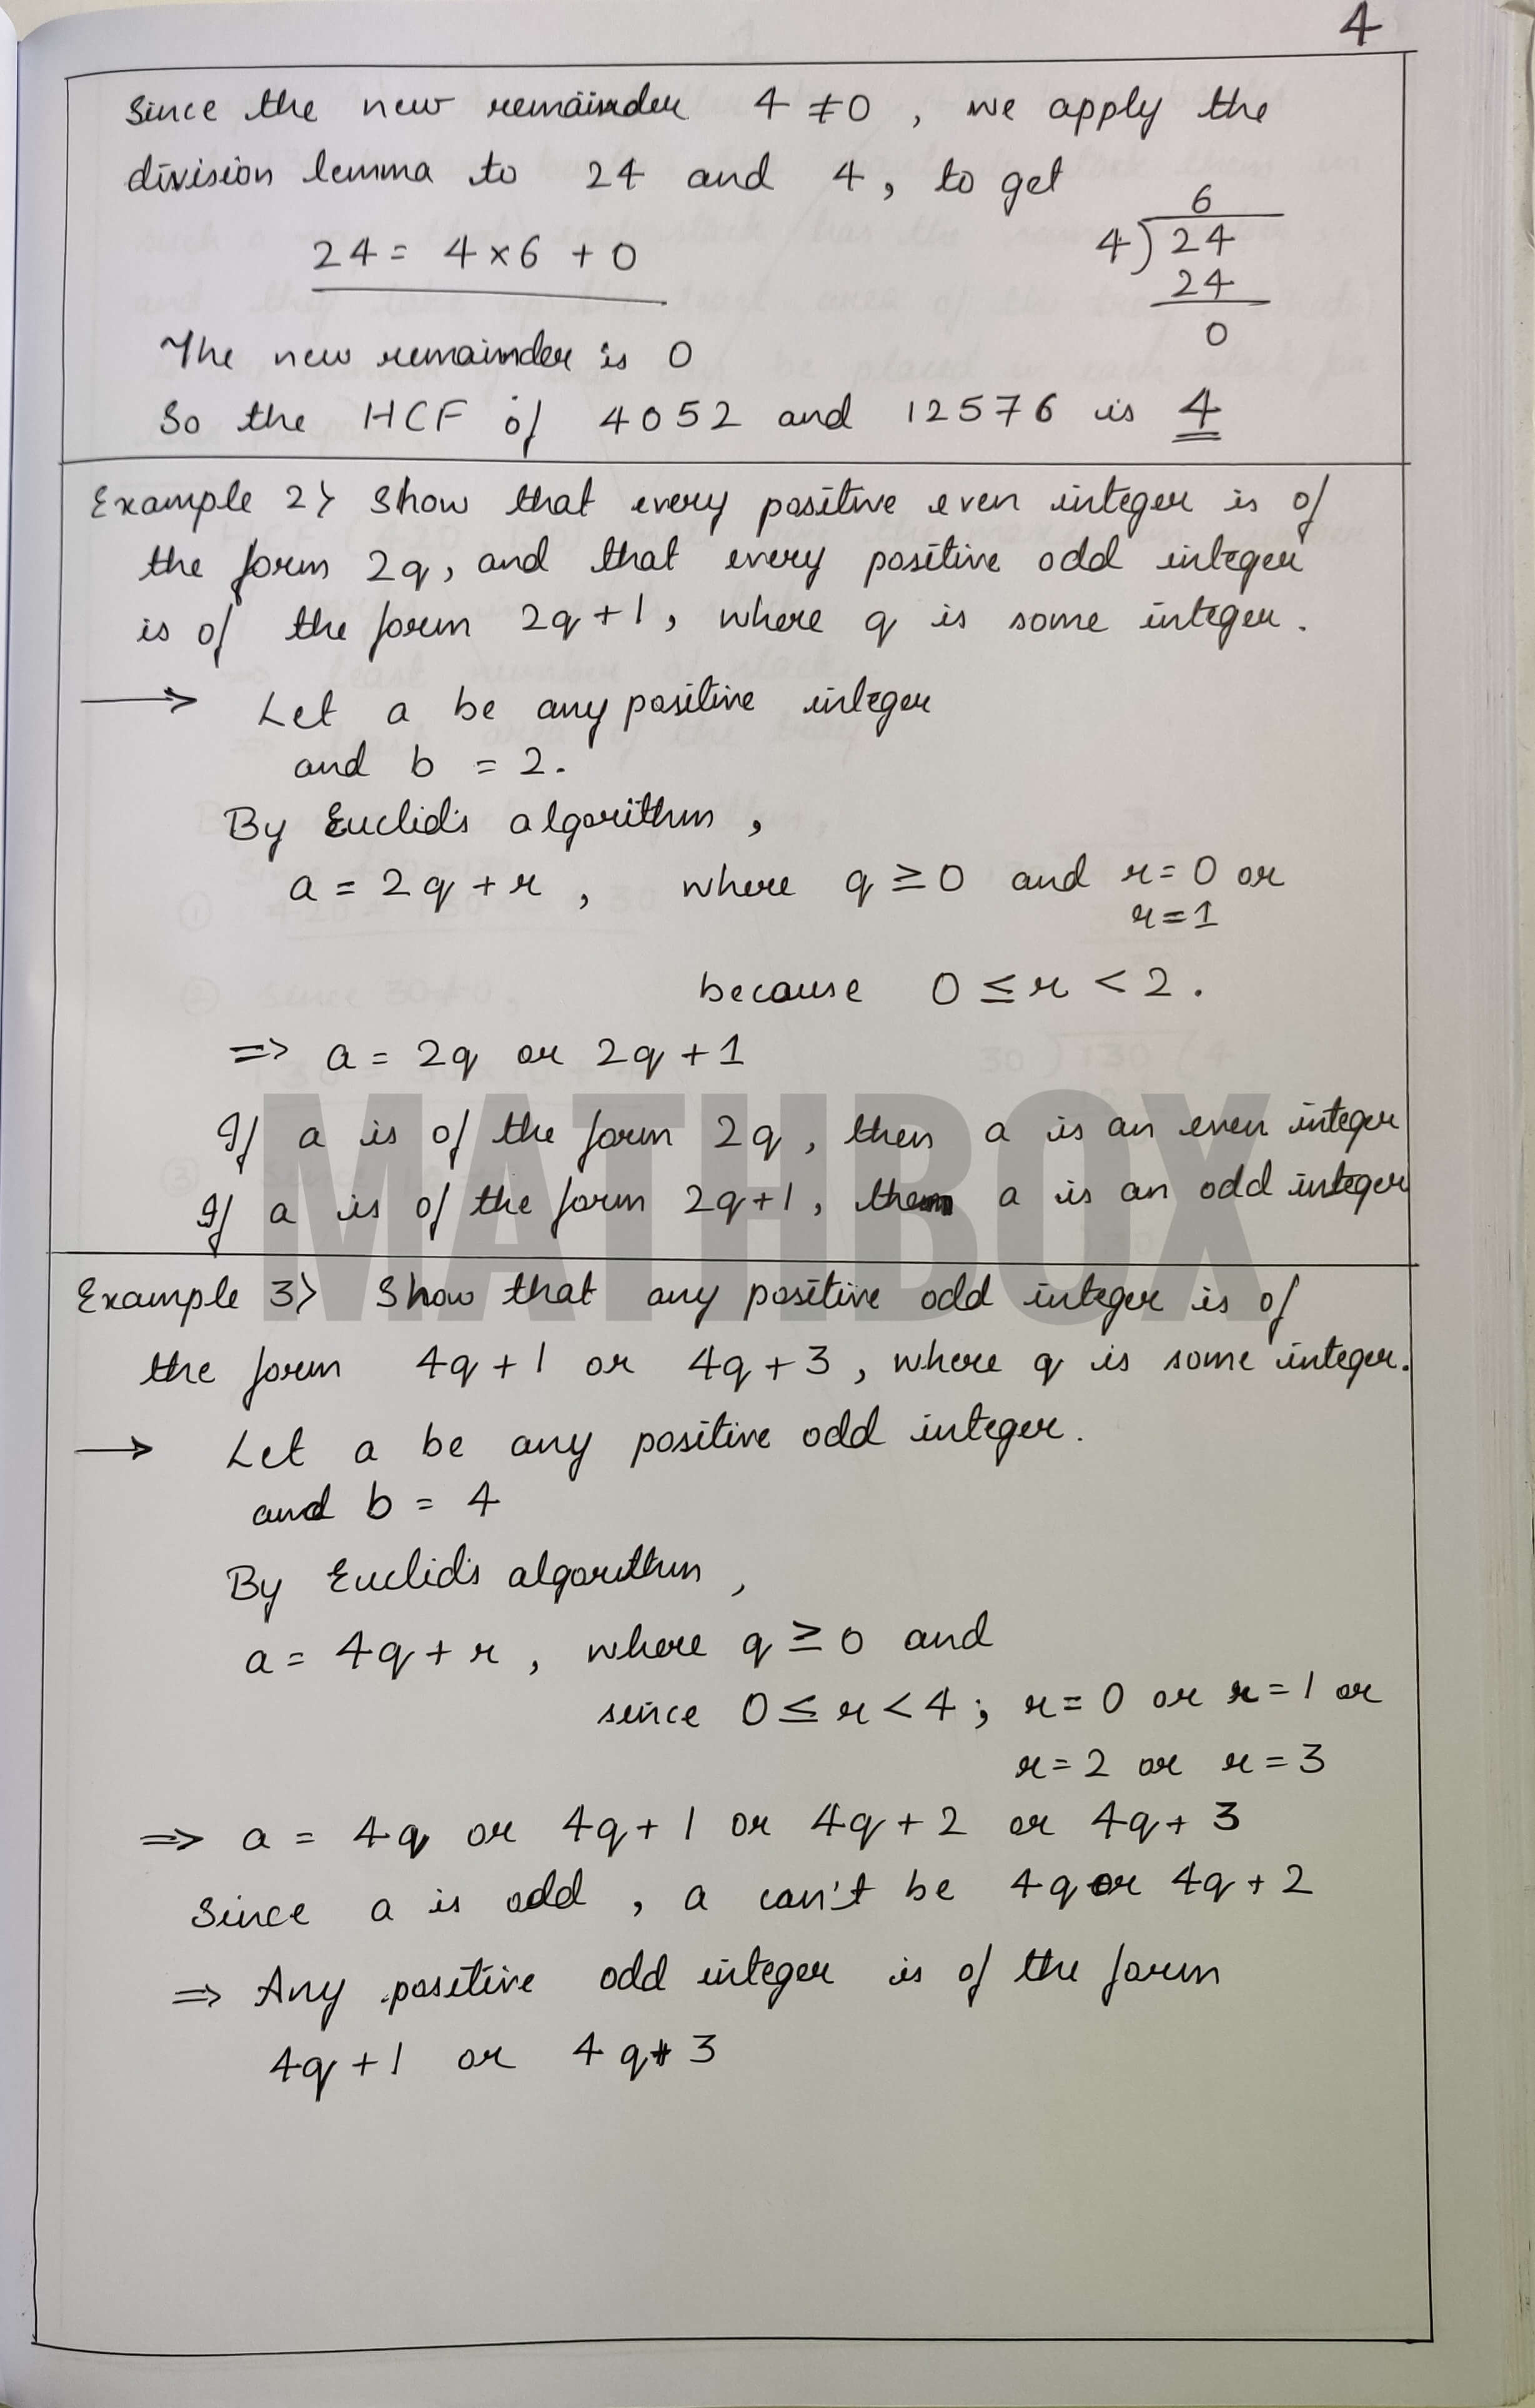 4
Since the new remainder 4 ≠ 0, we apply the
division lemma to 24 and 4, to get
24 = 4 × 6 + 0
6
4) 24
24
0
The new remainder is 0
So the HCF of 4052 and 12576 is 4
Example 2> Show that every positive even integer is of
the form 2q, and that every positive odd integer
is of the form 2q + 1, where q is some integer.
→ Let a be any positive integer
and b = 2.
By Euclid's algorithm,
a = 2q + r, where q ≥ 0 and r = 0 or
r = 1
because 0 ≤ r < 2.
=> a = 2q or 2q + 1
If a is of the form 2q, then a is an even integer
If a is of the form 2q+1, then a is an odd integer
MATHBOX
Example 3> Show that any positive odd integer is of
the form 4q + 1 or 4q + 3, where q is some integer.
→ Let a be any positive odd integer.
and b = 4
By Euclid's algorithm,
a = 4q + r, where q ≥ 0 and
since 0 ≤ r < 4; r = 0 or r = 1 or
r = 2 or r = 3
=> a = 4q or 4q + 1 or 4q + 2 or 4q + 3
Since a is odd, a can't be 4q or 4q + 2
=> Any positive odd integer is of the form
4q + 1 or 4q + 3